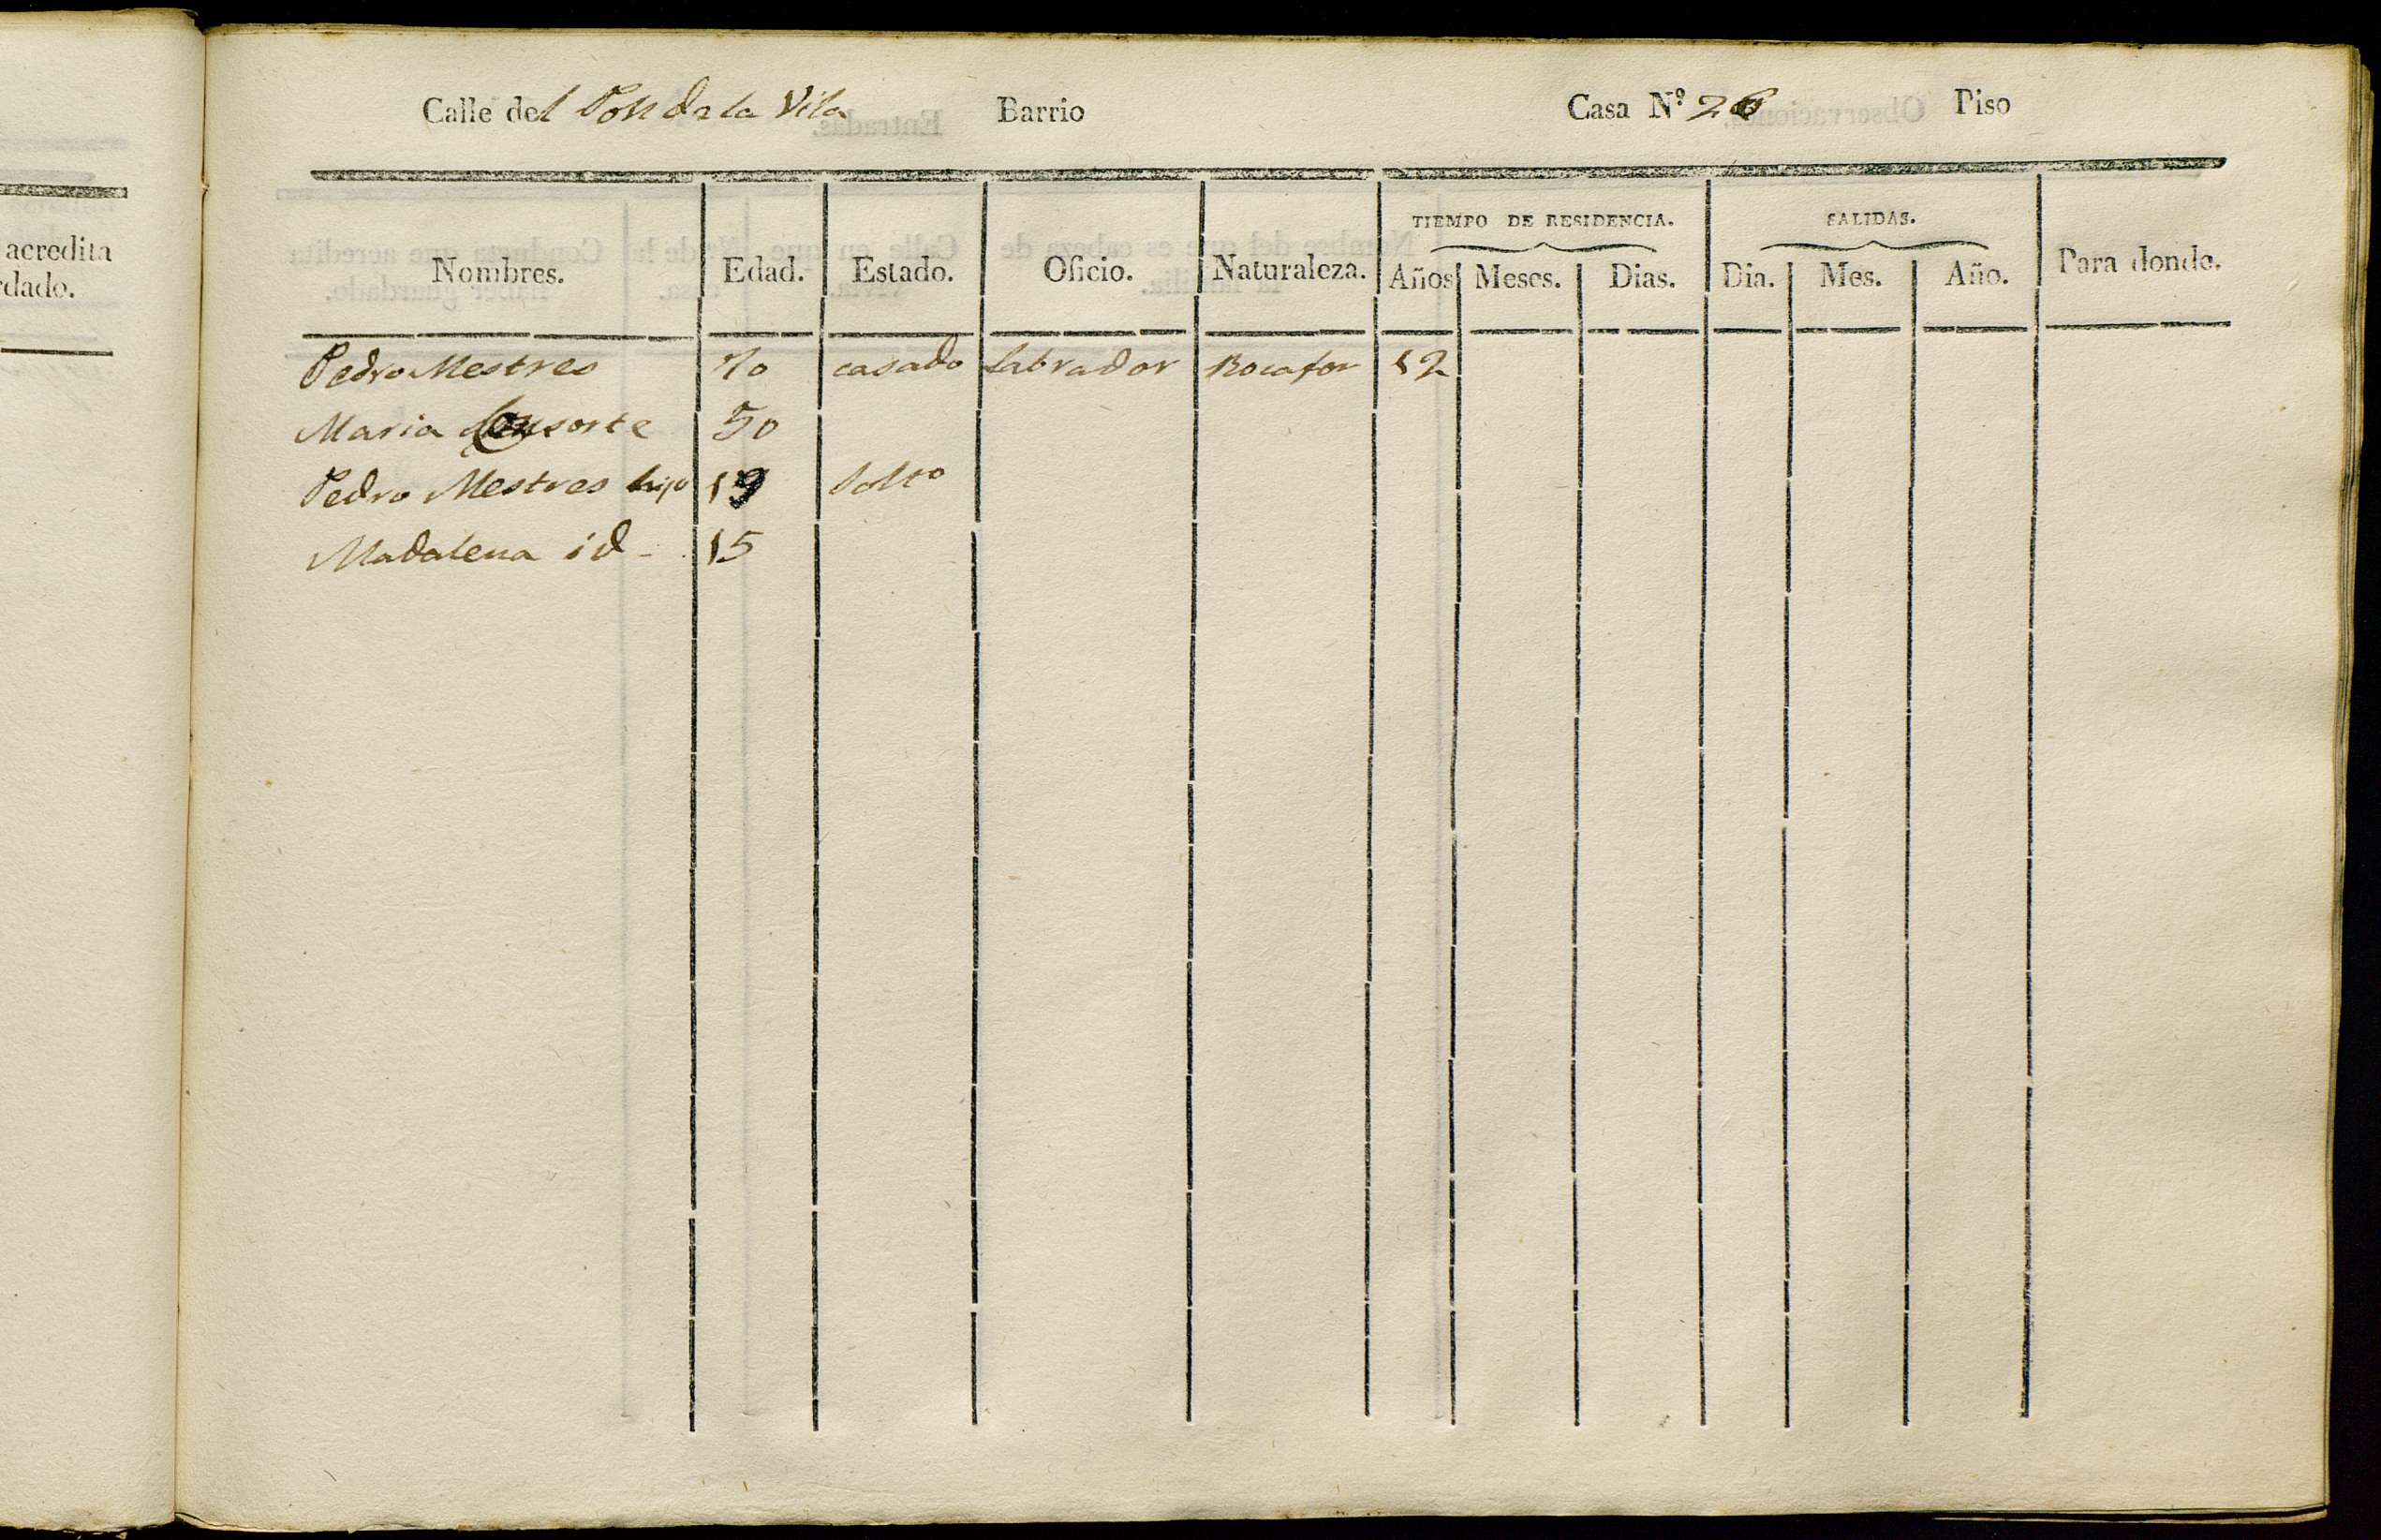 acredita
rdado.
Calle del Pou de la Vila Barrio Casa Nº 26 Piso
TIEMPO DE RESIDENCIA. SALIDAS.
Nombres. Edad. Estado. Oficio. Naturaleza. Años Meses. Dias. Dia. Mes. Año. Para donde.
Pedro Mestres 70 casado Labrador Rocafor 12
Maria Consorte 50
Pedro Mestres hijo 19 Solto
Madalena id 15